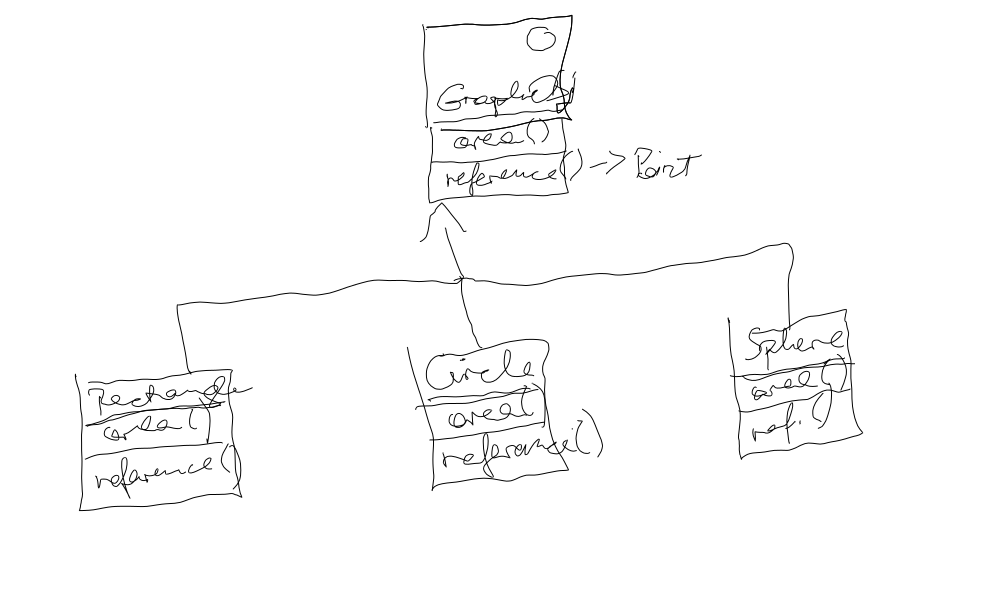 GraphicObj
area()
reference() -> Point
Rectangle
area()
reference()
Circle
area()
reference()
Sphere
area()
ref.()